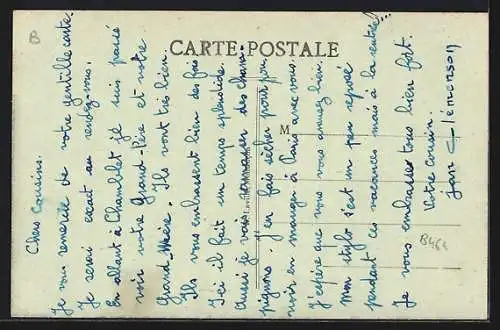 B
CARTE POSTALE
M
Chers Cousins.
Je vous remercie de votre gentille carte.
Je serai exact au rendez-vous.
En allant à Chamblet je suis passé
voir votre Grand-Père et votre
Grand-Mère. Ils vont très bien.
Ils vous embrassent bien des fois
Ici il fait un temps splendide.
Aussi je vais ramasser des cham-
pignons. J'en fais sécher pour pou-
voir en manger à Paris avec vous.
J'espère que vous vous amusez bien.
Mon stylo s'est un peu reposé
pendant ces vacances mais à la rentrée!...
Je vous embrasse tous bien fort.
Votre cousin.
Jean
B464